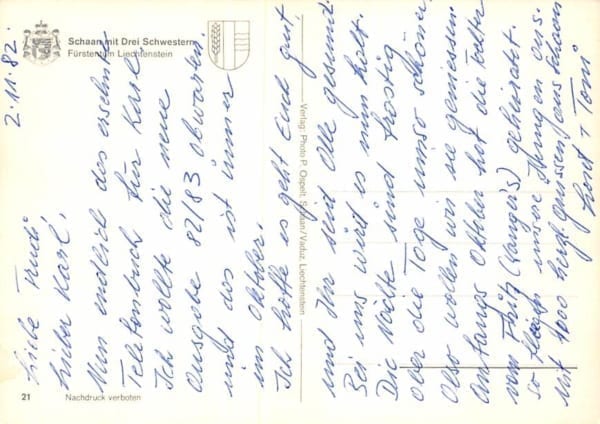 Schaan mit Drei Schwestern
Fürstentum Liechtenstein
2.11.82.
Liebe Trudi
Lieber Karl,
Nun endlich das ersehnte
Telefonbuch für Karl
Ich wollte die neue
Ausgabe 82/83 abwarten.
und das ist immer
im Oktober.
Ich hoffe es geht Euch gut
und Ihr seid alle gesund.
Bei uns wird es nun kalt.
Die Nächte sind frostig
aber die Tage umso schöner
Also wollen wir sie geniessen.
Anfangs Oktober hat die
vom Fritz gehüratet.
so unsere Jungen aus.
Mit 1000 herzl. grüssen aus Schaan
+ Toni
Verlag: Photo P. Ospelt, Schaan/Vaduz, Liechtenstein
21
Nachdruck verboten